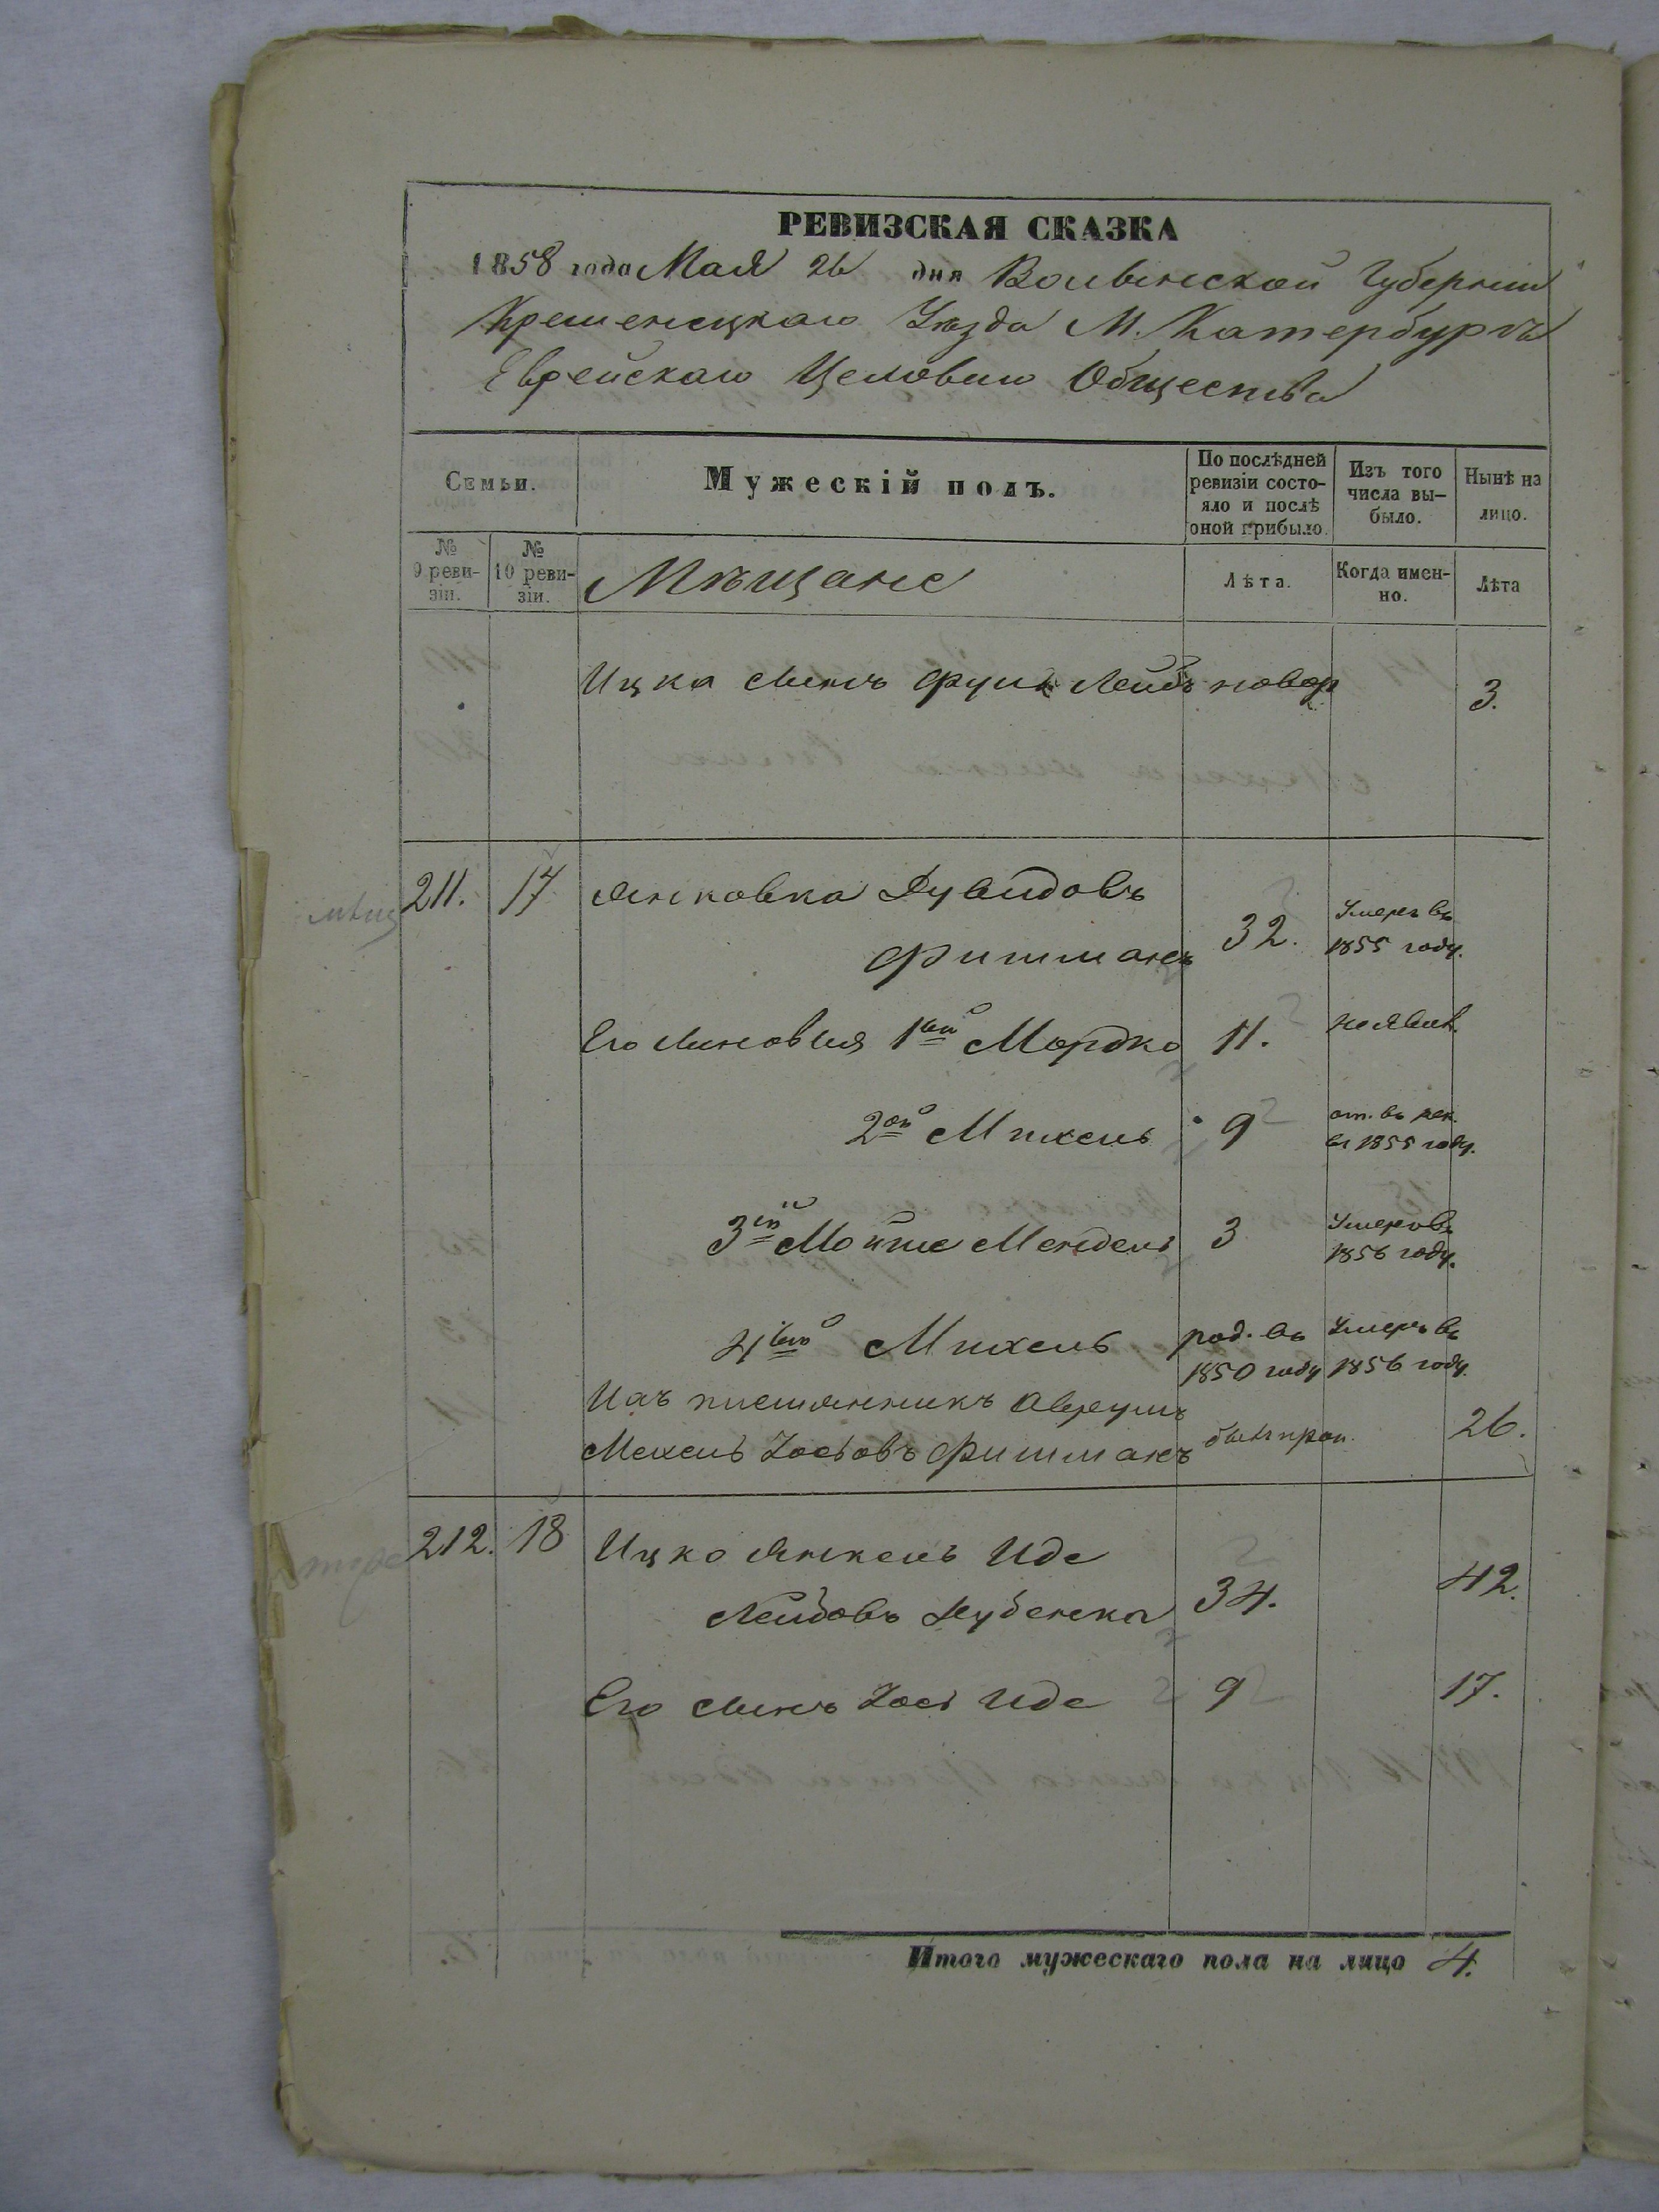 РЕВИЗСКАЯ СКАЗКА
1858 года Мая 26 дня Волынской Губернии
Кременецкаго Уезда М. Катербурга
Еврейскаго Общества
Семьи.
Мужескій полъ.
По послѣдней ревизіи состо-
яло и послѣ
оной прибыло.
Изъ того
числа вы-
было.
Нынѣ на
лицо.
№
9 реви-
зіи.
№
10 реви-
зіи.
Мѣщане
Лѣта.
Когда имен-
но.
Лѣта
Ицка сынъ Лейбъ новор 3.
мѣщ
211. 17 Янковка Дувидовъ
Фишманъ 32. Умеръ въ
1855 году.
Его сыновья 1ый Мордко 11. неявл.
2ой Михель 9 от. въ рек.
въ 1855 году.
3ій Мойше Мендель 3 Умеръ въ
1856 году.
4ый Михель род. въ Умеръ въ
1850 году 1856 году.
Ихъ племянникъ Аврумъ
Мехель Іосьовъ Фишманъ былъ проп. 26.
212. 18 Ицко Янкель Иде
Лейбовъ Дубенска 34. 42.
Его сынъ Іось Иде 9 17.
Итого мужескаго пола на лицо 4.